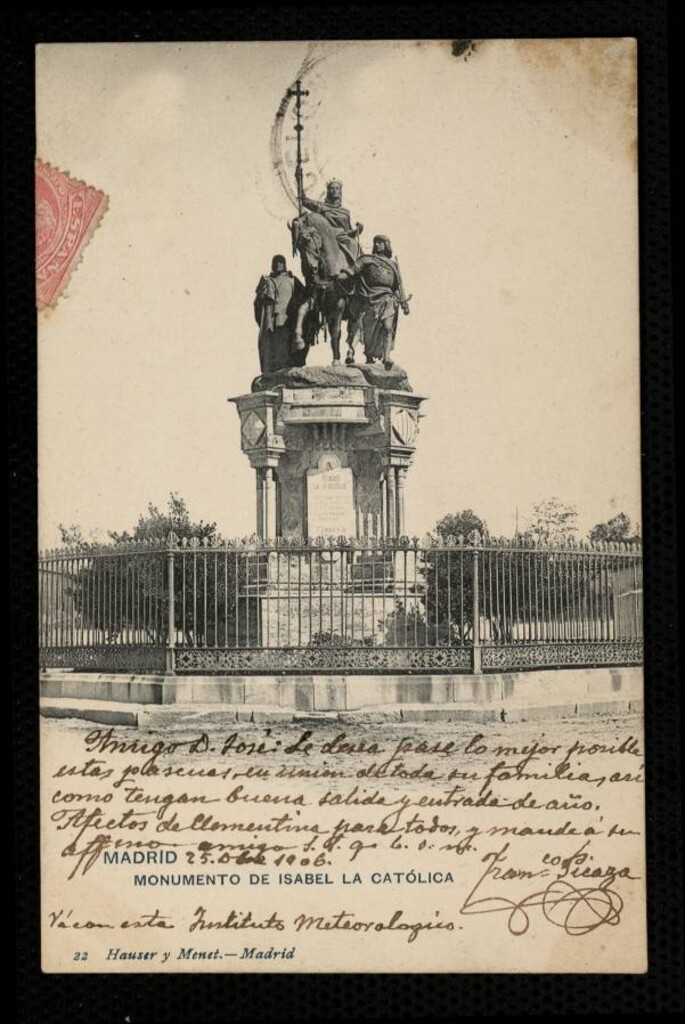 ESPAÑA
Amigo D. José: Le desea pase lo mejor posible
estas pascuas, en union de toda su familia, asi
como tengan buena salida y entrada de año.
Afectos de Clementina para todos, y mande á su
affmo amigo S. S. q. b. s. m.
MADRID 25. Dbre 1906. Franco Picaza
MONUMENTO DE ISABEL LA CATÓLICA
Va con esta Instituto Meteorologico.
22 Hauser y Menet.—Madrid